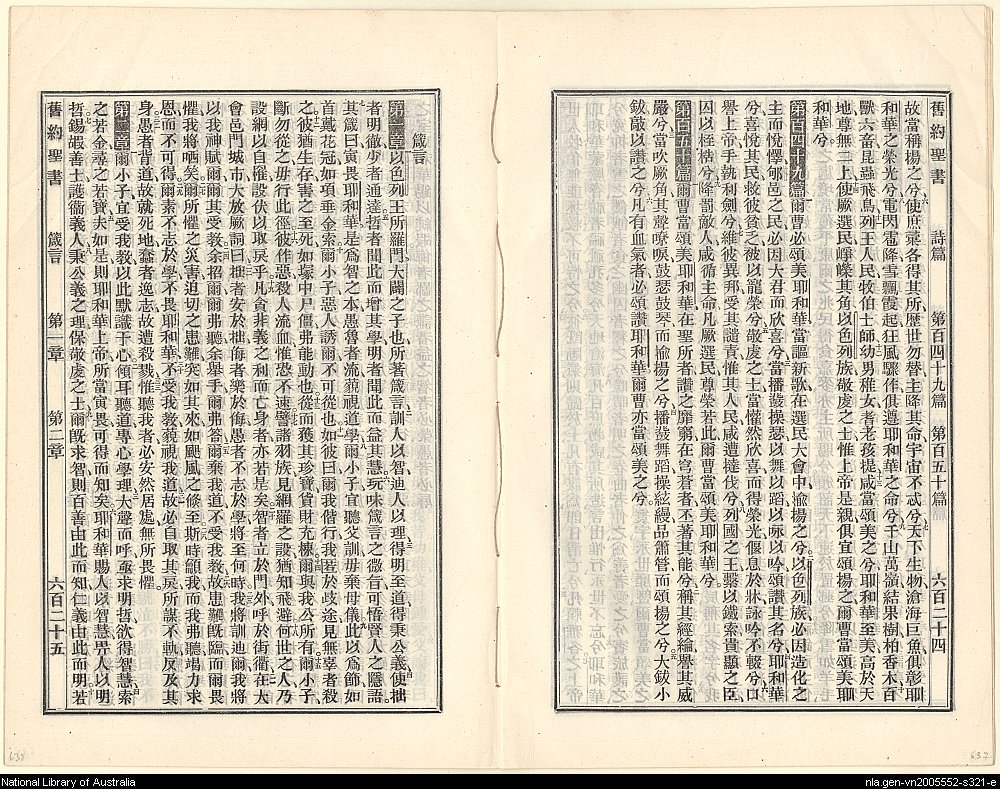 舊約聖書 詩篇 第百四十九篇 第百五十篇 六百二十四
故當稱揚之兮使庶彙各得其所歷世勿替主降其命宇宙不忒兮天下生物滄海巨魚俱彰耶
和華之榮光兮電閃雹降雪飄霞起狂風驟作俱遵耶和華之命兮千山萬嶺結果樹柏香木百
獸六畜昆蟲飛鳥列王人民牧伯士師幼男稚女耆老孩提咸當頌美之兮耶和華至美高於天
地尊無二上使厥選民崢嶸其角以色列族敬虔之士惟上帝是親俱宜頌揚之爾曹當頌美耶
和華兮
第百四十九篇爾曹必頌美耶和華當謳新歌在選民大會中揄揚之兮以色列族必因造化之
主而悅懌郇邑之民必因大君而欣喜兮當播鼗操瑟以舞以蹈以咏以吟讚其名兮耶和華
兮喜悅其民救彼貧乏被以寵榮兮敬虔之士當懽然欣喜而得榮光偃息於牀詠吟不輟兮口
譽上帝手執利劍兮維彼異邦受其譴責惟其人民咸遭撻伐兮列國之王繫以鐵索貴顯之臣
囚以桎梏兮降罰敵人咸循主命凡厥選民尊榮若此爾曹當頌美耶和華兮
第百五十篇爾曹當頌美耶和華在聖所者讚之靡窮在穹蒼者丕著其能兮稱其經綸譽其威
嚴兮當吹厥角其聲嘹唳鼓瑟鼓琴而揄揚之兮播鼗舞蹈操絃縵品簫管而頌揚之兮大鈸小
鈸敲以讚之兮凡有血氣者必頌讚耶和華爾曹亦當頌美之兮
箴言
第一章以色列王所羅門大闢之子也所著箴言訓人以智迪人以理得明至道得秉公義使拙
者明徹少者通達哲者聞此而增其學明者聞此而益其慧玩味箴言之微旨可悟賢人之隱語
其箴曰寅畏耶和華是爲智之本愚魯者流藐視道學爾小子宜聽父訓毋棄母儀此以爲飾如
首戴花冠如項垂金索爾小子惡人誘爾不可從也如彼曰爾我偕行我匿於歧途見無辜者殺
之彼猶生存害之至死如塚中尸僵弗能動也從而獲其珍寶貨財充棟爾與我公所有爾小子
斷勿從之毋行此徑彼作惡殺人流血惟恐不速譬諸羽族見網羅之設猶知飛避何世之人乃
設網以自罹設伏以取戾乎凡貪非義之利而亡身者亦若是矣智者立於門外呼於街衢在大
會邑門城市大放厥詞曰拙者安於拙侮者樂於侮愚者不志於學將至何時我將訓迪爾我將
以我神賦爾爾其受敎余招爾爾弗聽余舉手爾弗答爾棄我道不受我敎故患難旣臨而爾畏
懼我將哂矣爾所懼之災害迫切之患難突如其來如颶風之倏至斯時籲我而我弗聽竭力求
恩而不可得爾素不志於學不畏耶和華不受我敎藐視我道故必自取其戾所謀不軌反及其
身愚者背道故就死地惷者逸志故遭殺戮惟聽我者必安然居處無所畏懼
第二章爾小子宜受我敎以此默識于心傾耳聽道專心學理大聲而呼亟求明哲欲得智慧索
之若金尋之若寶夫如是則耶和華上帝所當寅畏可得而知矣耶和華賜人以智慧畀人以明
哲錫嘏善士護衛義人秉公義之理保敬虔之士爾旣求智則百善由此而知仁義由此而明若
舊約聖書 箴言 第一章 第二章 六百二十五
638
637
National Library of Australia
nla.gen-vn2005552-s321-e